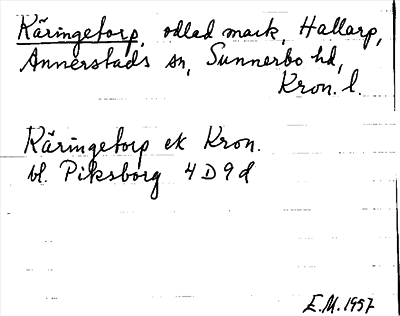 Käringetorp, odlad mark, Hallarp,
Annerstads sn, Sunnerbo hd,
Kron. l.
Käringetorp ek Kron.
bl. Piksborg 4 D 9 d
E.M. 1957